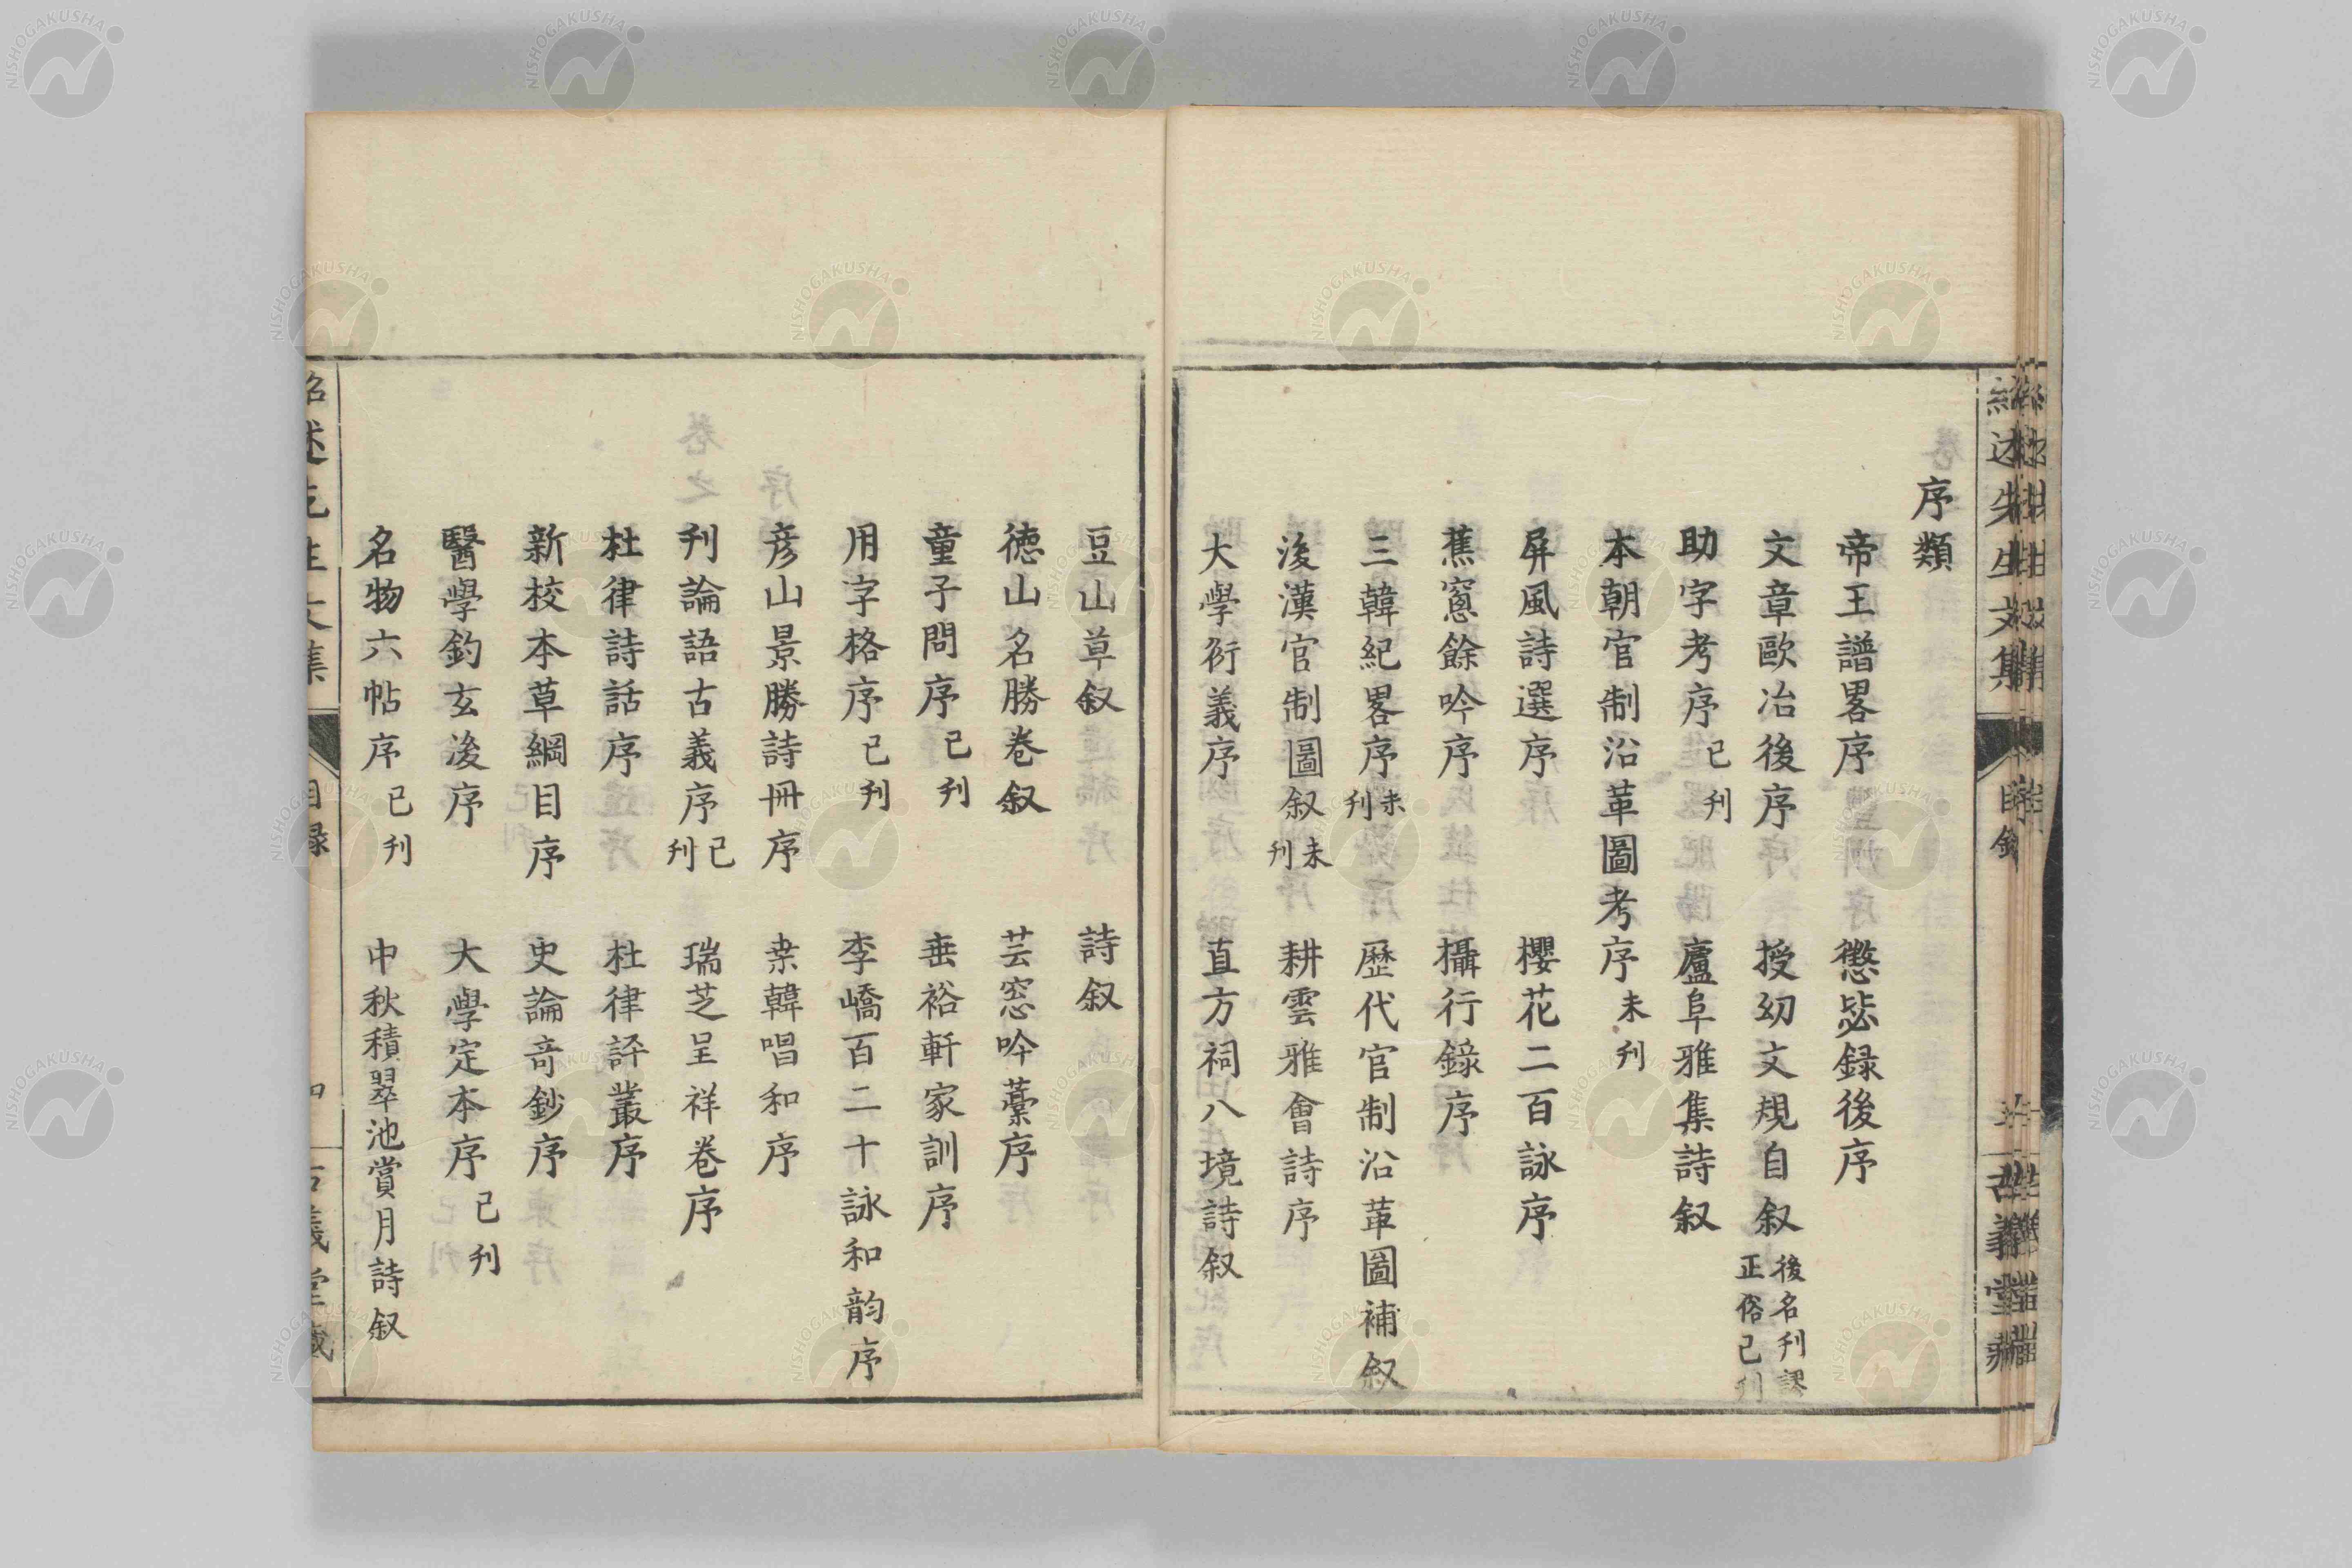 序類
帝王譜畧序 懲毖録後序
文章歐冶後序 授幼文規自叙 後名刋謬正俗已刋
助字考序 已刋 廬阜雅集詩叙
本朝官制沿革圖考序 未刋
屏風詩選序 櫻花二百詠序
蕉窻餘吟序 攝行錄序
三韓紀畧序 未刋 歷代官制沿革圖補叙
後漢官制圖叙 未刋 耕雲雅會詩序
大學衍義序 直方祠八境詩叙
豆山草叙 詩叙
德山名勝卷叙 芸窓吟藁序
童子問序 已刋 垂裕軒家訓序
用字格序 已刋 李嶠百二十詠和韵序
彦山景勝詩冊序 桒韓唱和序
刋論語古義序 已刋 瑞芝呈祥卷序
杜律詩話序 杜律評叢序
新校本草綱目序 史論奇鈔序
醫學鈎玄後序 大學定本序 已刋
名物六帖序 已刋 中秋積翠池賞月詩叙
紹述先生文集 目録 四 古義堂藏
NISHOGAKUSHA